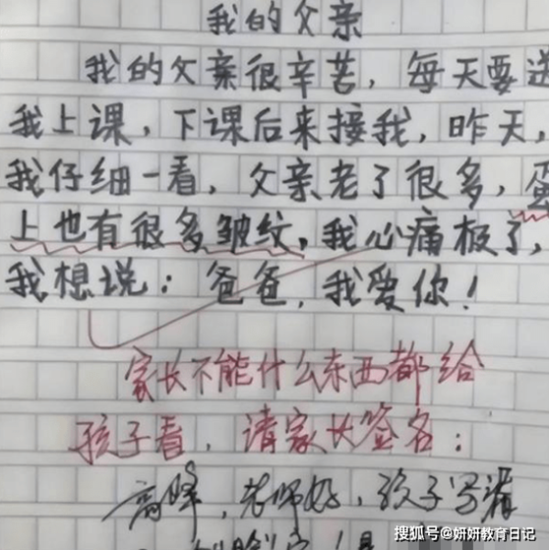 我的父亲
我的父亲很辛苦，每天要送
我上课，下课后来接我，昨天，
我仔细一看，父亲老了很多，蛋
上也有很多皱纹，我心痛极了，
我想说：爸爸，我爱你！
家长不能什么东西都给
孩子看，请家长签名：
高峰，老师好，孩子写
搜狐号@妍妍教育日记